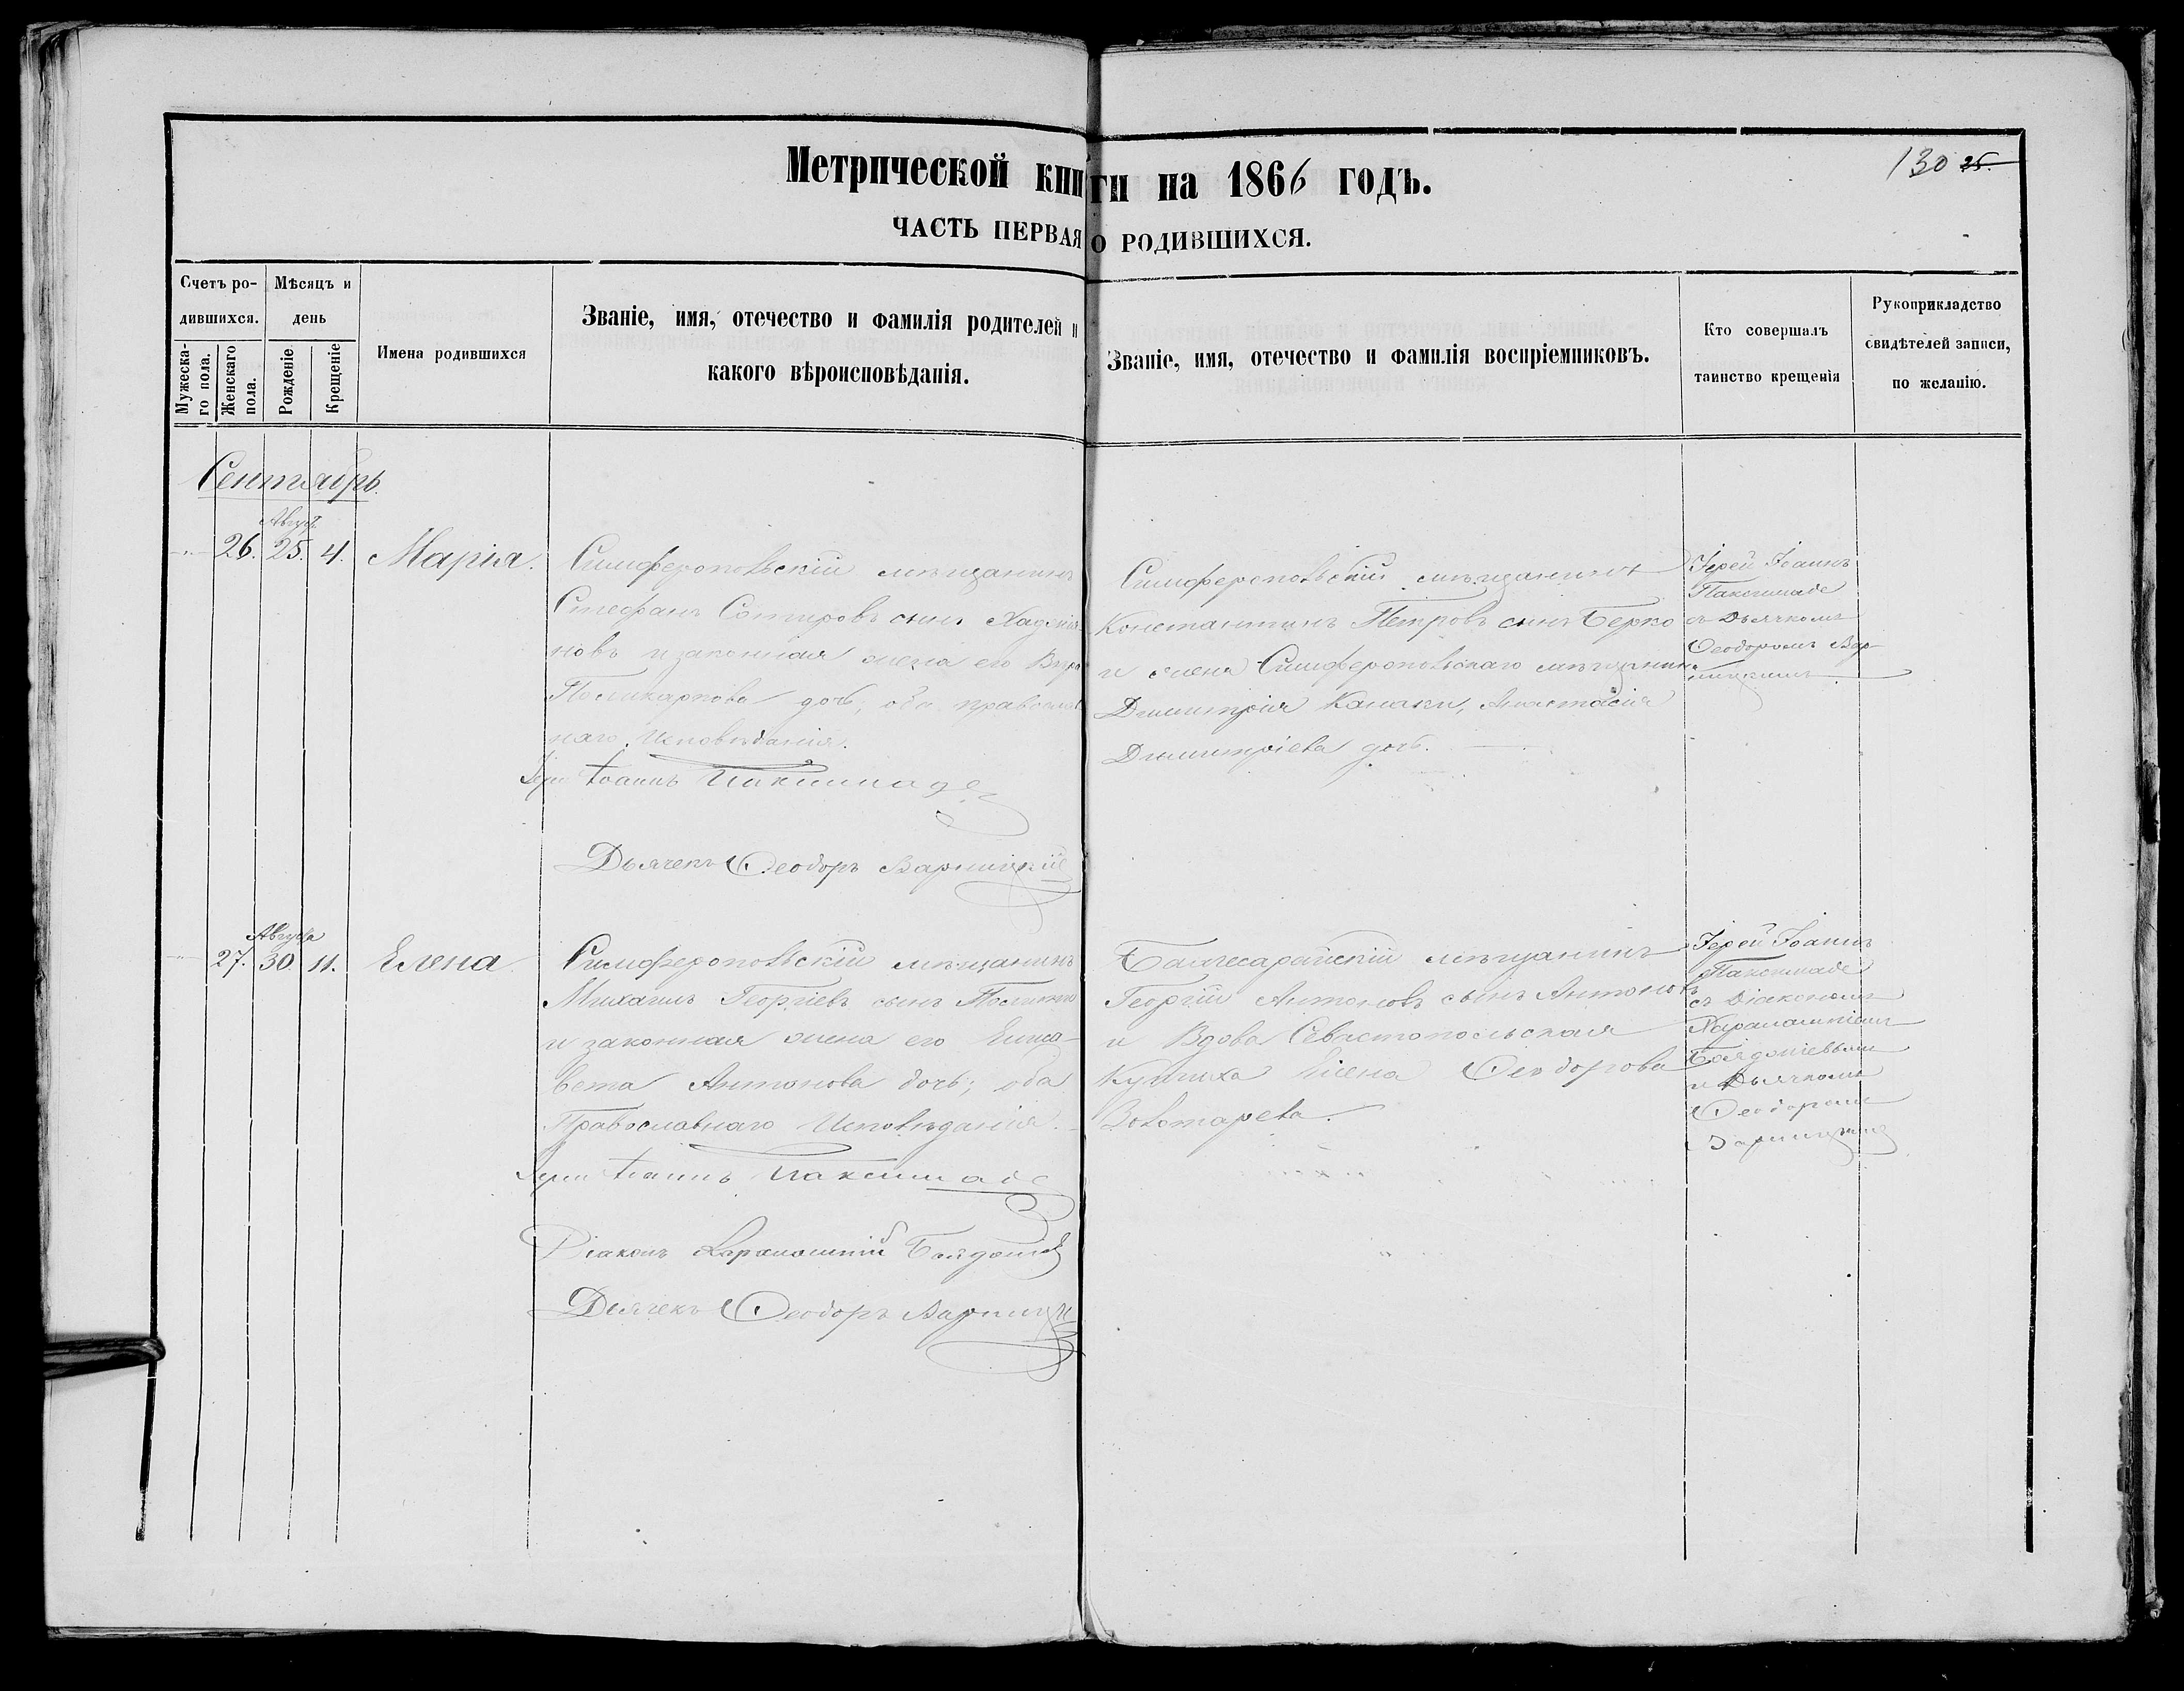 Метрической книги на 1866 годъ.
130 25.
ЧАСТЬ ПЕРВАЯ О РОДИВШИХСЯ.
Счетъ ро-
дившихся.
Мужеска-
го пола.
Женскаго
пола.
Мѣсяцъ и
день
Рожденіе
Крещеніе
Имена родившихся
Званіе, имя, отечество и фамилія родителей и
какого вѣроисповѣданія.
Званіе, имя, отечество и фамилія воспріемниковъ.
Кто совершалъ
таинство крещенія
Рукоприкладство
свидѣтелей записи,
по желанію.
Сентябрь.
Август.
26. 25. 4. Марія.
Симферопольскій мѣщанинъ
Стефанъ Сотировъ сынъ
новъ и законная жена его Вѣра
Поликарпова дочь, оба православ
наго Исповѣданія.
Іерей Іоаннъ Паксимаде
Дьячекъ Ѳеодоръ Варницкій
Симферопольскій мѣщанинъ
Константинъ Петровъ сынъ Берко
и жена Симферопольскаго мѣщанина
Димитрія Канаки, Анастасія
Димитріева дочь.
Іерей Іоаннъ
Паксимаде
съ Дьячкомъ
Ѳеодоромъ Вар-
ницкимъ
Августа
27. 30. 11. Елена
Симферопольскій мѣщанинъ
Михаилъ Георгіевъ сынъ
и законная жена его Елиса-
вета Антонова дочь; оба
Православнаго Исповѣданія.
Іерей Іоаннъ Паксимаде
Діаконъ Харалампій
Дьячекъ Ѳеодоръ Варницкій
Бахчесарайскій мѣщанинъ
Георгій Антоновъ сынъ Антоновъ
и Вдова Севастопольская
Купчиха Елена Ѳеодорова
Іерей Іоаннъ
Паксимаде
съ Діакономъ
Харалампіемъ
и Дьячкомъ
Ѳеодоромъ
Варницкимъ